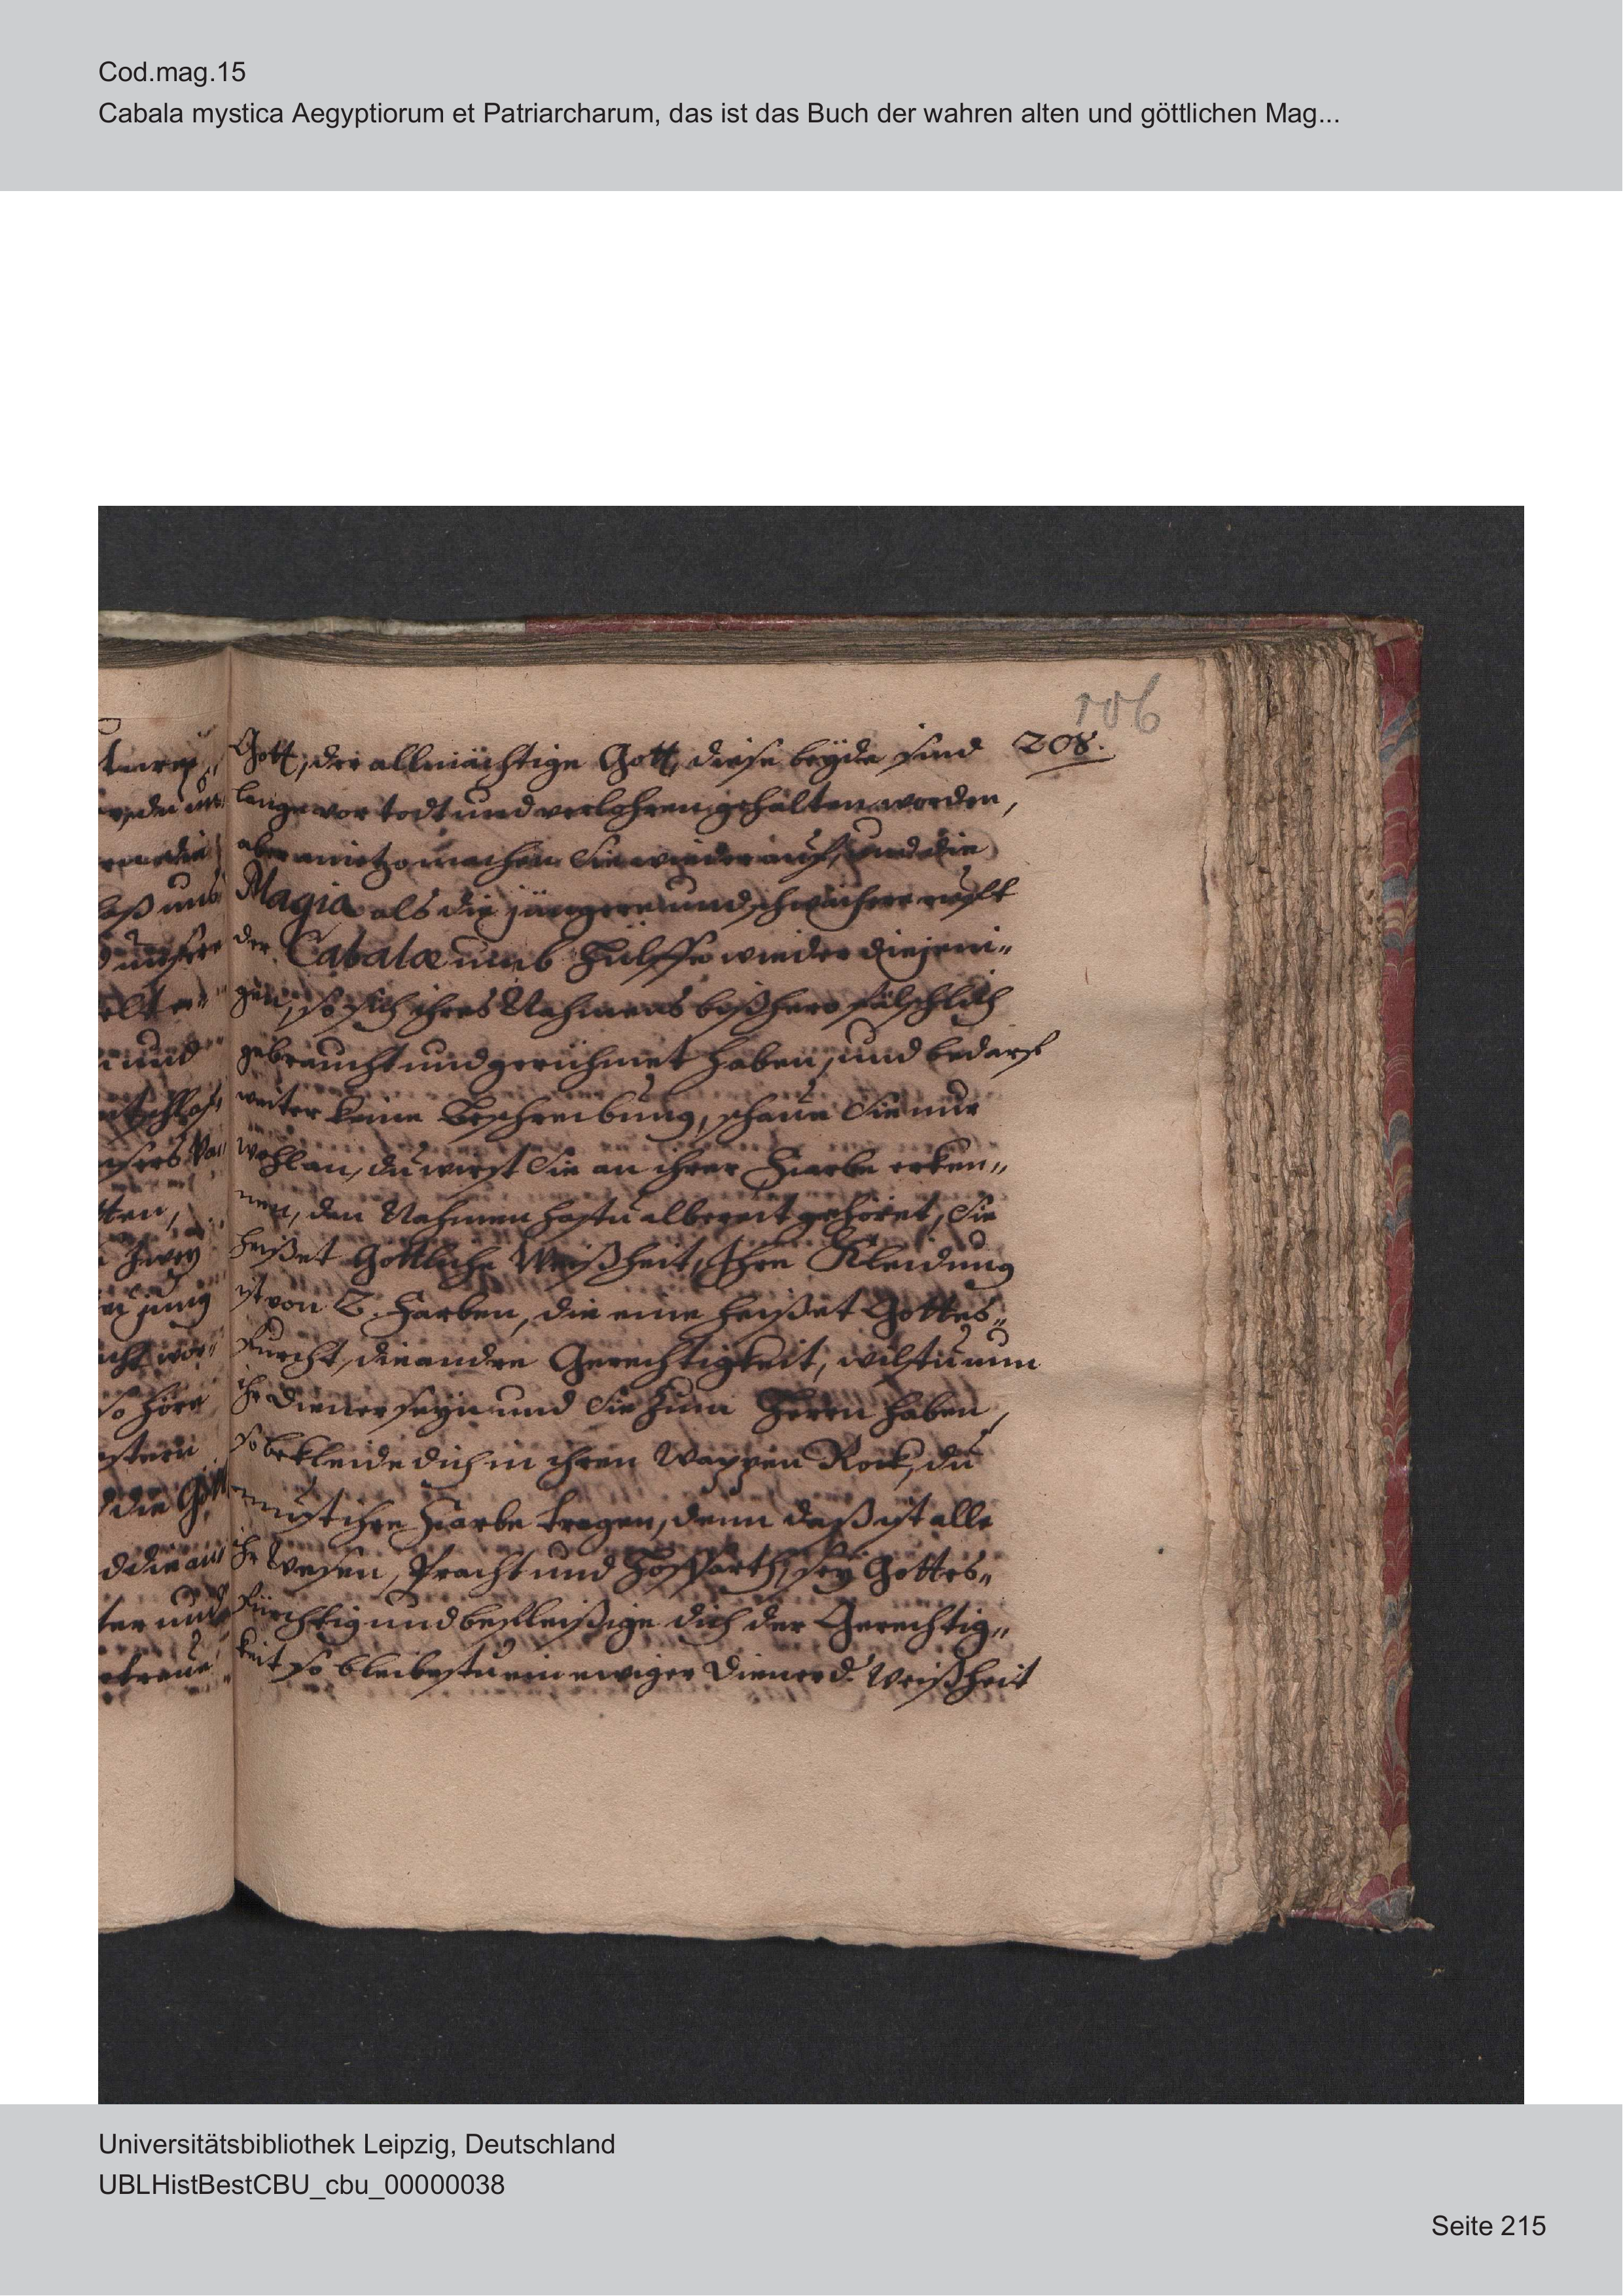 Cod.mag.15
Cabala mystica Aegyptiorum et Patriarcharum, das ist das Buch der wahren alten und göttlichen Mag...
106
208.
Gott, der allmächtige Gott, diese beÿde sind
lange vor todt und verlohren gehalten worden,
aber anietzo wachen Sie wieder auf, und die
Magia als die jüngere und schwächere rufft
der Cabalæ umb Hülffe wieder diejeni„
gen, so sich ihres Nahmens bißhero fälschlich
gebraucht und gerühmet haben, und bedarf
weiter keine Beschreibung, schaue Sie nur
wohl an, du wirst Sie an ihrer Farbe erken„
nen, den Nahmen hastu albereit gehöret, Sie
heißet Göttliche Weißheit, Ihre Kleidung
ist von 2. Farben, die eine heißet Gottes„
Furcht, die andre Gerechtigkeit, wilstu nun
ihr Diener seÿn und Sie zum Herrn haben,
so bekleide dich in ihren Wappen Rock, du
must ihre Farbe tragen, denn daß ist alle
ihr Wesen, Pracht und Hoffarth, seÿ Gottes„
fürchtig und befleißige dich der Gerechtig„
keit so bleibestu ein ewiger Diener d. Weißheit
Universitätsbibliothek Leipzig, Deutschland
UBLHistBestCBU_cbu_00000038
Seite 215